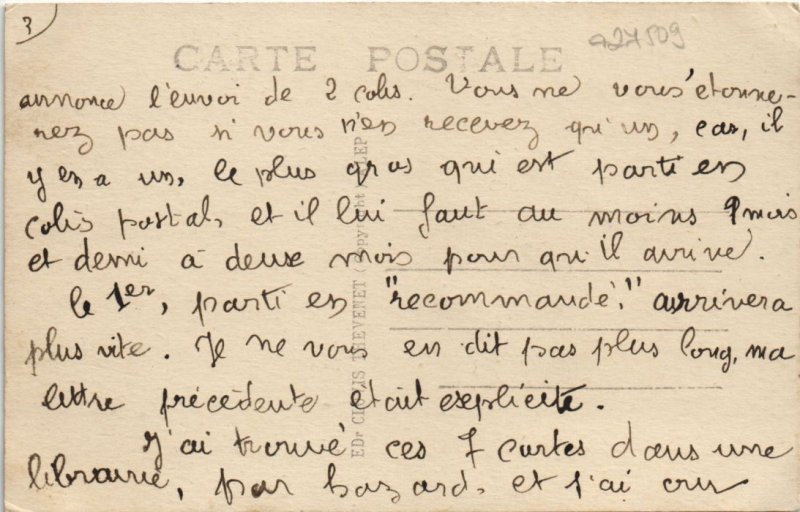 3
a27509
CARTE POSTALE
annonce l'envoi de 2 colis. Vous ne vous étonne-
rez pas si vous n'en recevez qu'un, car, il
y en a un, le plus gros qui est parti en
colis postal, et il lui faut au moins 1 mois
et demi à deux mois pour qu'il arrive.
le 1er, parti en "recommandé," arrivera
plus vite. Je ne vous en dit pas plus long, ma
lettre précédente était explicite.
J'ai trouvé ces 7 cartes dans une
librairie, par hazard, et j'ai cru
EDr CLOVIS THEVENET (Copyright) ALEP